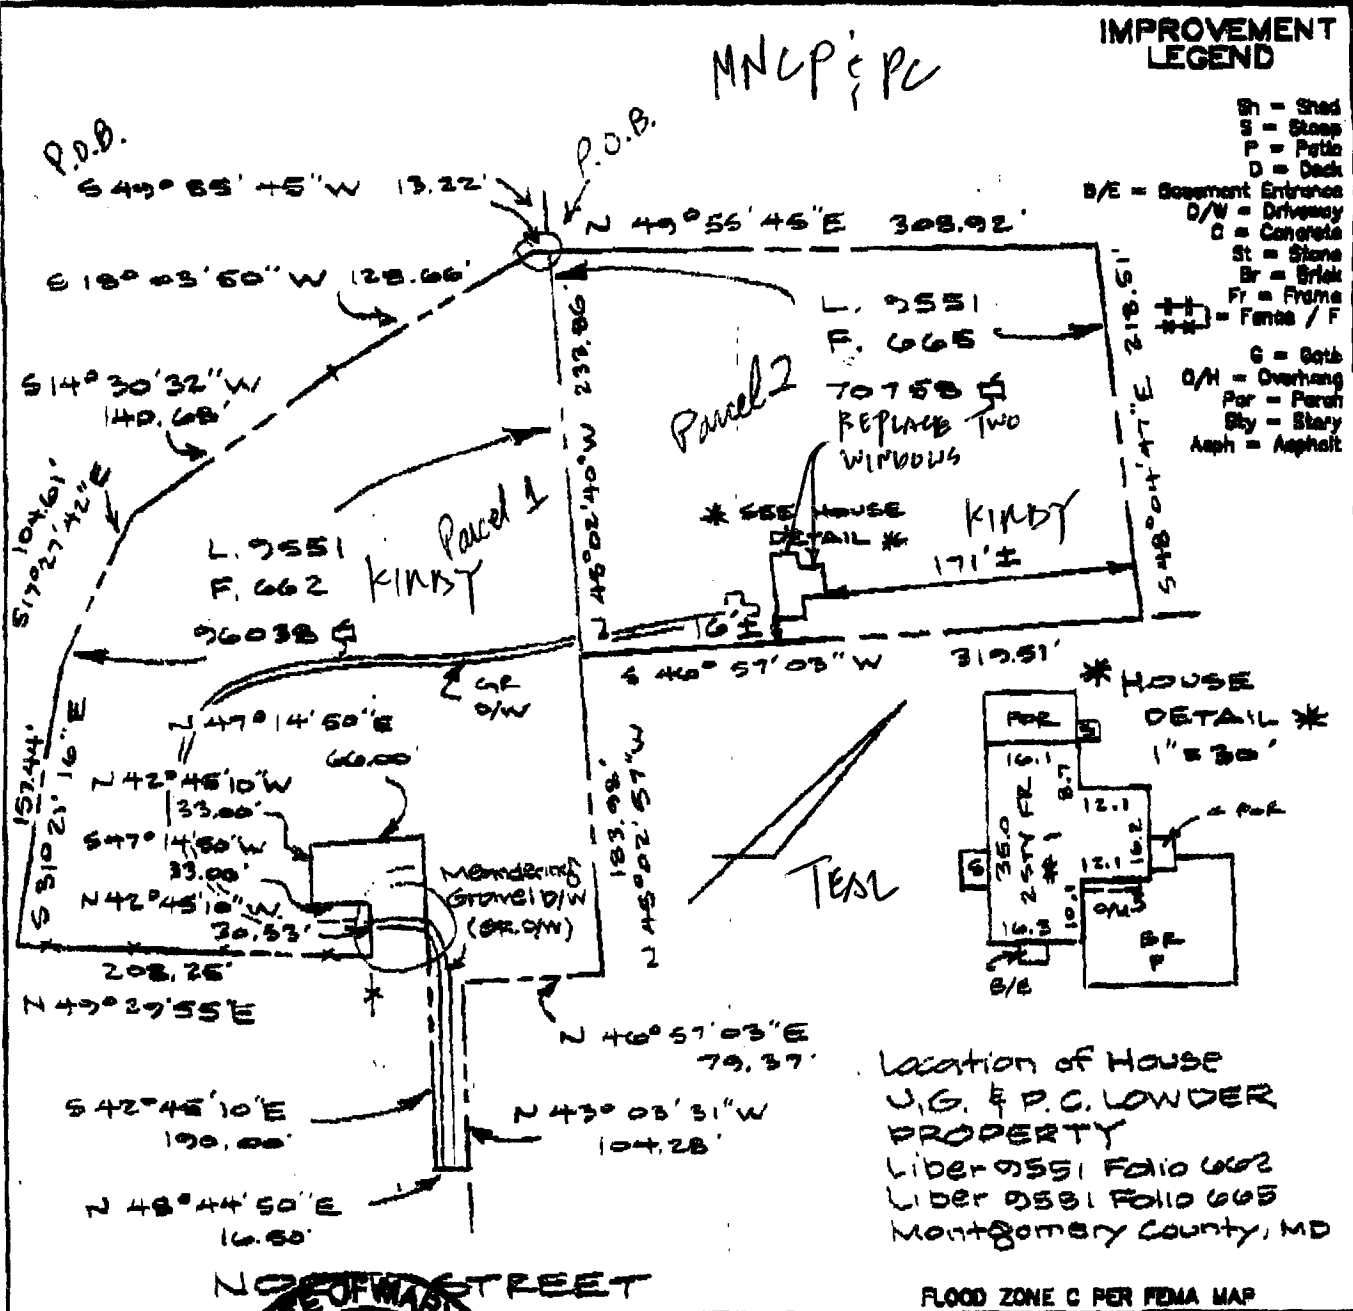 IMPROVEMENT
LEGEND
MNCP & PC
Sh = Shed
S = Stoop
P = Patio
D = Deck
B/E = Basement Entrance
D/W = Driveway
C = Concrete
St = Stone
Br = Brick
Fr = Frame
= Fence / F
O/H = Overhang
Por = Porch
Sty = Story
Asph = Asphalt
P.O.B.
P.O.B.
13.22'
N 49° 55' 45" E 308.92'
S 18° 03' 50" W 128.66'
S 14° 30' 32" W
140.68'
104.61'
S 19° 27' 42" E
157.44'
S 31° 21' 16" E
L. 9551
F. 662
96038
KIRBY
Parcel 1
N 45° 02' 40" W 233.86'
L. 9551
F. 665
70758
REPLACE TWO
WINDOWS
Parcel 2
* SEE HOUSE
DETAIL *
KIRBY
171' ±
16'±
218.51'
S 48° 04' 47" E
S 46° 57' 03" W 319.51'
GR
D/W
N 47° 14' 50" E
66.00'
N 42° 45' 10" W
33.00'
S 47° 14' 50" W
33.00'
N 42° 45' 10" W
30.53'
Meandering
Gravel D/W
(GR. D/W)
183.98'
N 45° 02' 57" W
208.25'
N 49° 29' 55" E
N 46° 57' 03" E
79.37'
S 42° 45' 10" E
190.00'
N 43° 03' 31" W
104.28'
N 48° 44' 50" E
16.50'
STREET
* HOUSE
DETAIL *
1" = 30'
POR
S
16.1
8.7
12.1
POR
35.0
2 STY FR
16.2
12.1
S
10.1
16.3
BR
P
B/E
Location of House
J.G. & P.C. LOWDER
PROPERTY
Liber 9551 Folio 662
Liber 9551 Folio 665
Montgomery County, MD
FLOOD ZONE C PER FEMA MAP